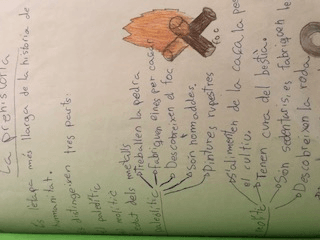 La prehistòria
La etapa més llarga de la història de
humanitat.
distingeixen tres parts:
paleolític
neolític
edat dels metalls
paleolític
treballen la pedra
fabriquen eines per caçar
Descobreixen el foc
són nòmades.
Pintures rupestres
foc
neolític
s'alimenten de la caça la pe
el cultiu.
Tenen cura del bestia.
Són sedentaris, es fabriquen le
Descobreixen la roda